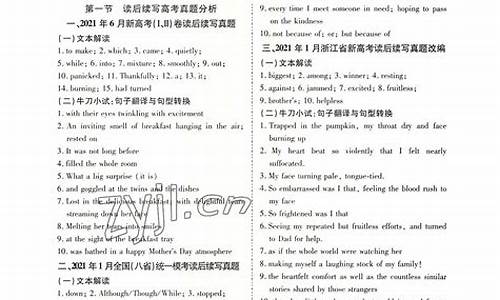 第一节 读后续写高考真题分析
一、2021 年 6 月新高考(I、II)卷读后续写真题
(一)文本解读
1. to make; 2. which; 3. came; 4. quietly;
5. while; 6. into; 7. mixture; 8. smoothly; 9. out;
10. panicked; 11. Thankfully; 12. a; 13. it;
14. burning; 15. had turned
(二)牛刀小试:句子翻译与句型转换
1. with their eyes twinkling with excitement
2. An inviting smell of breakfast hanging in the air;
rested on
3. It was not long before
4. filled the whole room
5. What a big surprise (it is)
6. and goggled at the twins and the dishes
7. Lost in the delicious breakfast, with delight
streaming down her face
8. Melting her tears into smiles
9. at the sight of the breakfast tray
10. was bathed in a happy Mother's Day atmosphere
二、2021 年 1 月全国(八省)统一模考读后续写真题
(一)文本解读
1. down; 2. Although/Though/While; 3. stopped;
9. every time I meet someone in need; hoping to pass
on the kindness
10. not because of; or; but because of
三、2021 年 1 月浙江省新高考读后续写真题改编
(一)文本解读
1. biggest; 2. among; 3. winner; 4. resting;
5. against; 6. jammed; 7. excited; 8. fruitless;
9. brother's; 10. helpless
(二)牛刀小试:句子翻译与句型转换
1. Trapped in the pumpkin, my throat dry and face
burning up
2. My heart beat so violently that I felt nearly
suffocated.
3. My face turning pale, tongue-tied.
4. So embarrassed was I that, feeling the blood rush to
my face
5. So frightened was I that
6. Seeing my repeated but fruitless efforts, and turned
to Dad for help.
7. as if the whole world were watching her
8. making myself a laughing stock of my family!
9. the heartfelt comfort as well as the countless similar
stories shared by those strangers
zyjl.cn